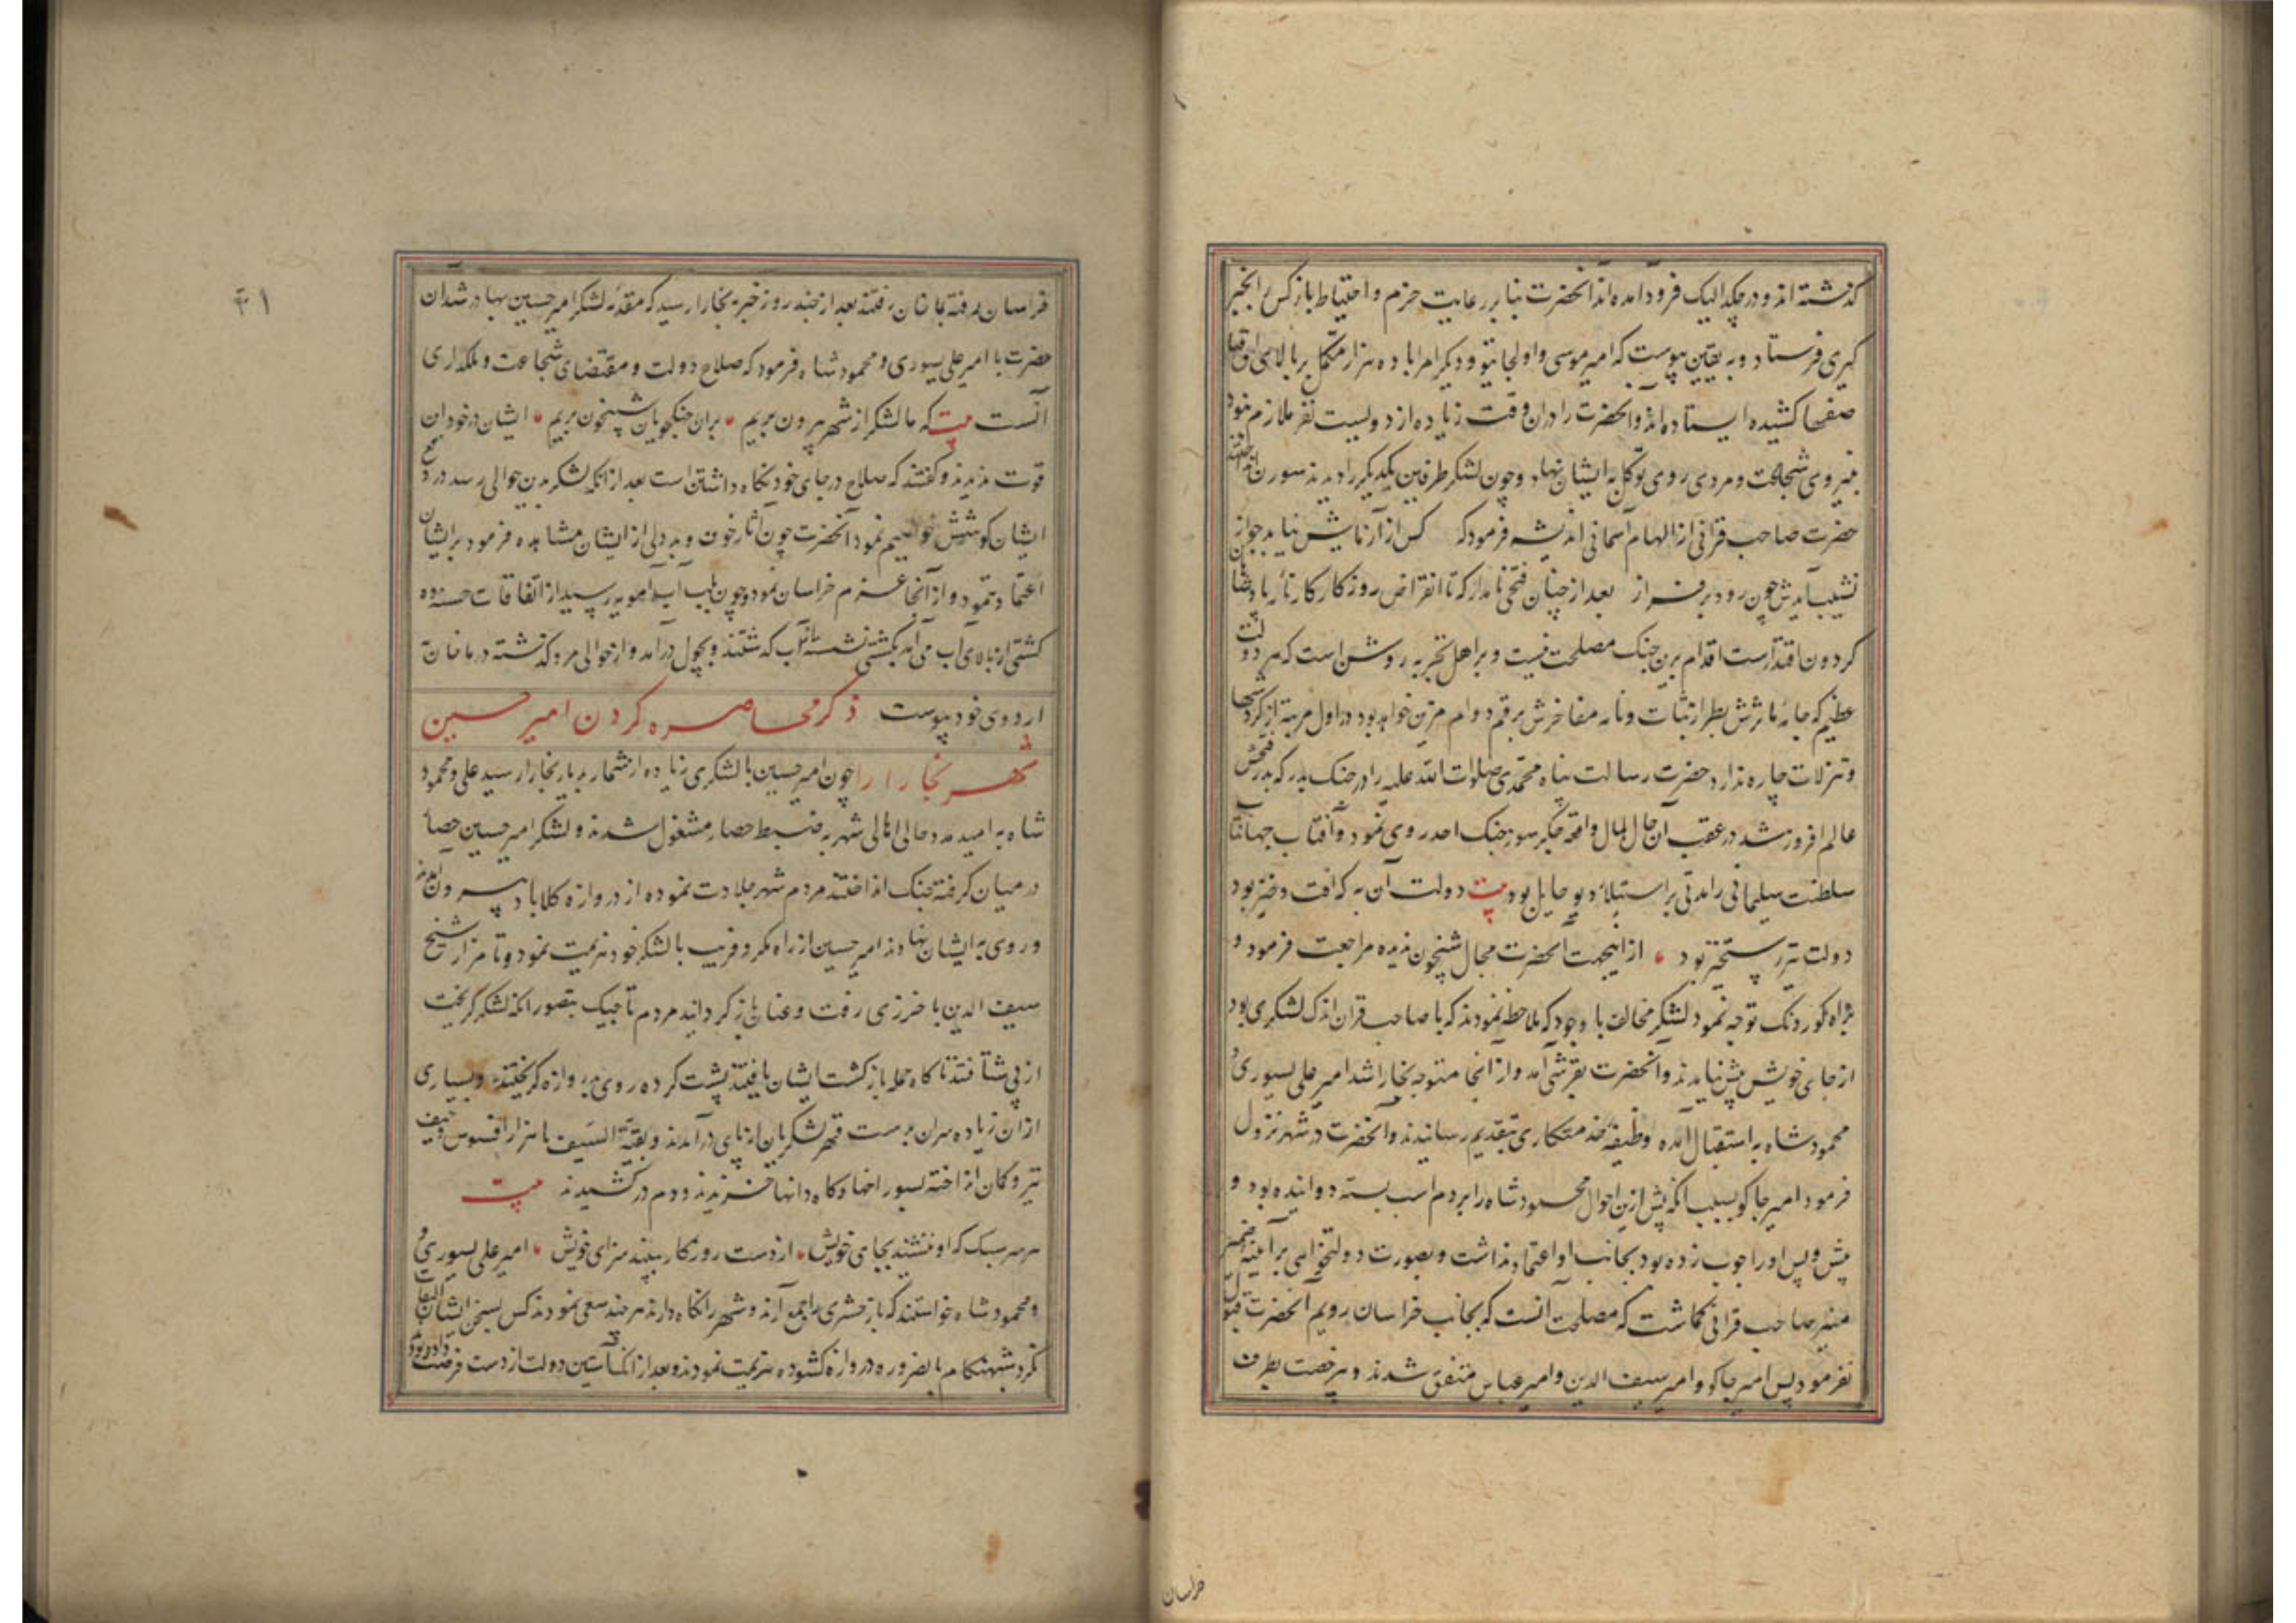 کذشته اند و در چکدالیک فرود آمده اند آنحضرت بنا بر رعایت حزم و احتیاط باز کس را بخبر
کیری فرستاد و به یقین پیوست که امیر موسی و اولجایتو و دیکر امرا با ده هزار مکمل بر بالای
صفها کشیده ایستاده اند و آنحضرت را دران وقت زیاده از دویست نفر ملازم نبود
بنیروی شجاعت و مردی روی توکل به ایشان نهاد و چون لشکر طرفین یکدیکر را دیدند سورن انداختند
حضرت صاحب قرانی از الهام آسمانی اندیشه فرمود که کس از آزمایش نیابد جواز
نشیب آیدش چون رود بر فراز بعد از چنان فتحی نامدار که تا انقراض روزکار کارنامه پادشاهان
کردون اقتدارست اقدام برین جنک مصلحت نیست و بر اهل تجربه روشن است که هر دولت
عظیم که جامه مآثرش بطراز ثبات و نامه مفاخرش برقم دوام مزین خواهد بود در اول مرتبه از
و تنزلات چاره ندارد حضرت رسالت پناه محمدی صلوات الله علیه را در جنک بدر که بدر فتحش
عالم افروز شد در عقب آن حال واقعه جکر سوز جنک احد روی نمود و آفتاب جهانتاب
سلطنت سلیمانی را مدتی بر استیلاء دیو حایل بود بیت دولت آن به که افت و خیز بود
دولت تیز رستخیز بود از اینجهت آنحضرت مجال شبیخون ندیده مراجعت فرمود و
براه کوردنک توجه نمود لشکر مخالف با وجود که ملاحظه نمودند که با صاحب قران اندک لشکری بود
از جای خویش پیش نیامدند و آنحضرت بقرشی آمد و از آنجا متوجه بخارا شد امیر علی یسوری و
محمود شاه به استقبال آمده وظیفه خدمتکاری بتقدیم رسانیدند و آنحضرت در شهر نزول
فرمود امیر جاکو بسبب آنکه پیش ازین احوال محمود شاه را بر دم اسب بسته دوانیده بود و
پیش و پس او را چوب زده بود بجانب او اعتماد نداشت و بصورت دولتخواهی بر آینه ضمیر
منیر صاحب قرانی نکاشت که مصلحت آنست که بجانب خراسان رویم آنحضرت قبول
نفرمود پس امیر جاکو و امیر سیف الدین و امیر عباس متفق شدند و بیرخصت بطرف
خراسان
۴۱
خراسان رفته بماخان رفتند بعد از چند روز خبر به بخارا رسید که مقدمه لشکر امیر حسین بهادر شد آن
حضرت با امیر علی یسوری و محمود شاه فرمود که صلاح دولت و مقتضای شجاعت و ملکداری
آنست بیت که ما لشکر از شهر بیرون بریم بران جنکجویان شبیخون بریم ایشان در خود آن
قوت ندیدند و کفتند که صلاح در جای خود نکاه داشتن است بعد از آنکه لشکر بدین حوالی رسد در دفع
ایشان کوشش خواهیم نمود آنحضرت چون آثار خوف و بددلی از ایشان مشاهده فرمود بر ایشان
اعتماد ننمود و از آنجا عزم خراسان نمود و چون بلب آب آمویه رسید از اتفاقات حسنه دو
کشتی از بالای آب می آمد بکشتی نشسته از آب کذشتند و بچول درآمد و از حوالی مرو کذشته در ماخان
اردوی خود پیوست ذکر محاصره کردن امیر حسین
شهر بخارا را چون امیر حسین با لشکری زیاده از شمار بدیار بخارا رسید علی و محمود
شاه به امید مدد اهالی شهر به ضبط حصار مشغول شدند و لشکر امیر حسین حصار
در میان کرفته جنک انداختند مردم شهر جلادت نموده از دروازه کلاباد بیرون آمدند
و روی به ایشان نهادند امیر حسین از راه مکر و فریب با لشکر خود هزیمت نمود و تا مزار شیخ
سیف الدین باخرزی رفت و عنان باز کردانید مردم تاجیک بتصور آنکه لشکر کریخت
از پی شتافتند ناکاه حمله بازکشت ایشان یافتند پشت کرده روی بدروازه کریختند و بسیاری
ازان زیاده سران بدست قهر لشکریان از پای درآمدند و بقیة السیف با هزار افسوس و حیف
تیر و کمان انداخته بسوراخها و کاه دانها خزیدند و دم در کشیدند بیت
هر سبک که او ننشیند بجای خویش از دست روزکار ببیند سزای خویش امیر علی یسوری و
و محمود شاه خواستند که باز حشری را جمع آرند و شهر را نکاه دارند هر چند سعی نمودند کس بسخن ایشان التفات
نکرد شبهنکام بالضروره دروازه کشوده هزیمت نمودند و بعد از آنکه آستین دولت از دست فرصت داده بود